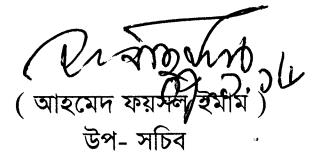 ( আহমেদ ফয়সল ইমাম )
উপ- সচিব